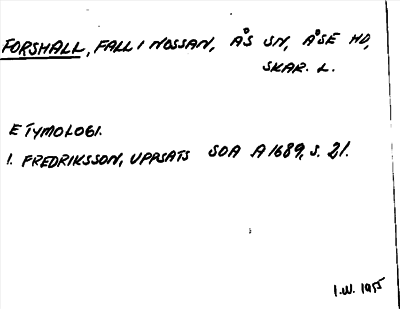 FORSHALL, FALL I NOSSAN, ÅS SN, ÅSE HD,
SKAR. L.
ETYMOLOGI.
1. FREDRIKSSON, UPPSATS SOA A1689, S. 21.
I.W. 1955